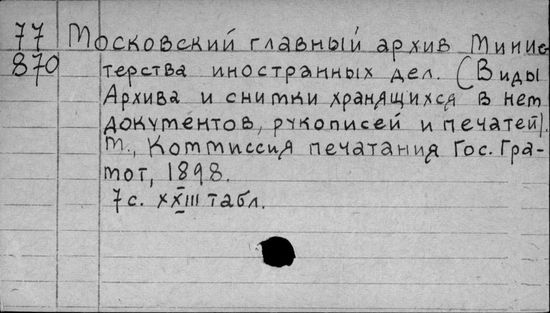 77 Московский главный архив Минис
870 терства иностранных дел. (Виды
Архива и снимки хранящихся в нем
документов, рукописей и печатей).
М., Коммиссия печатания Гос. Гра-
мот, 1898.
7 с. XXIII табл.